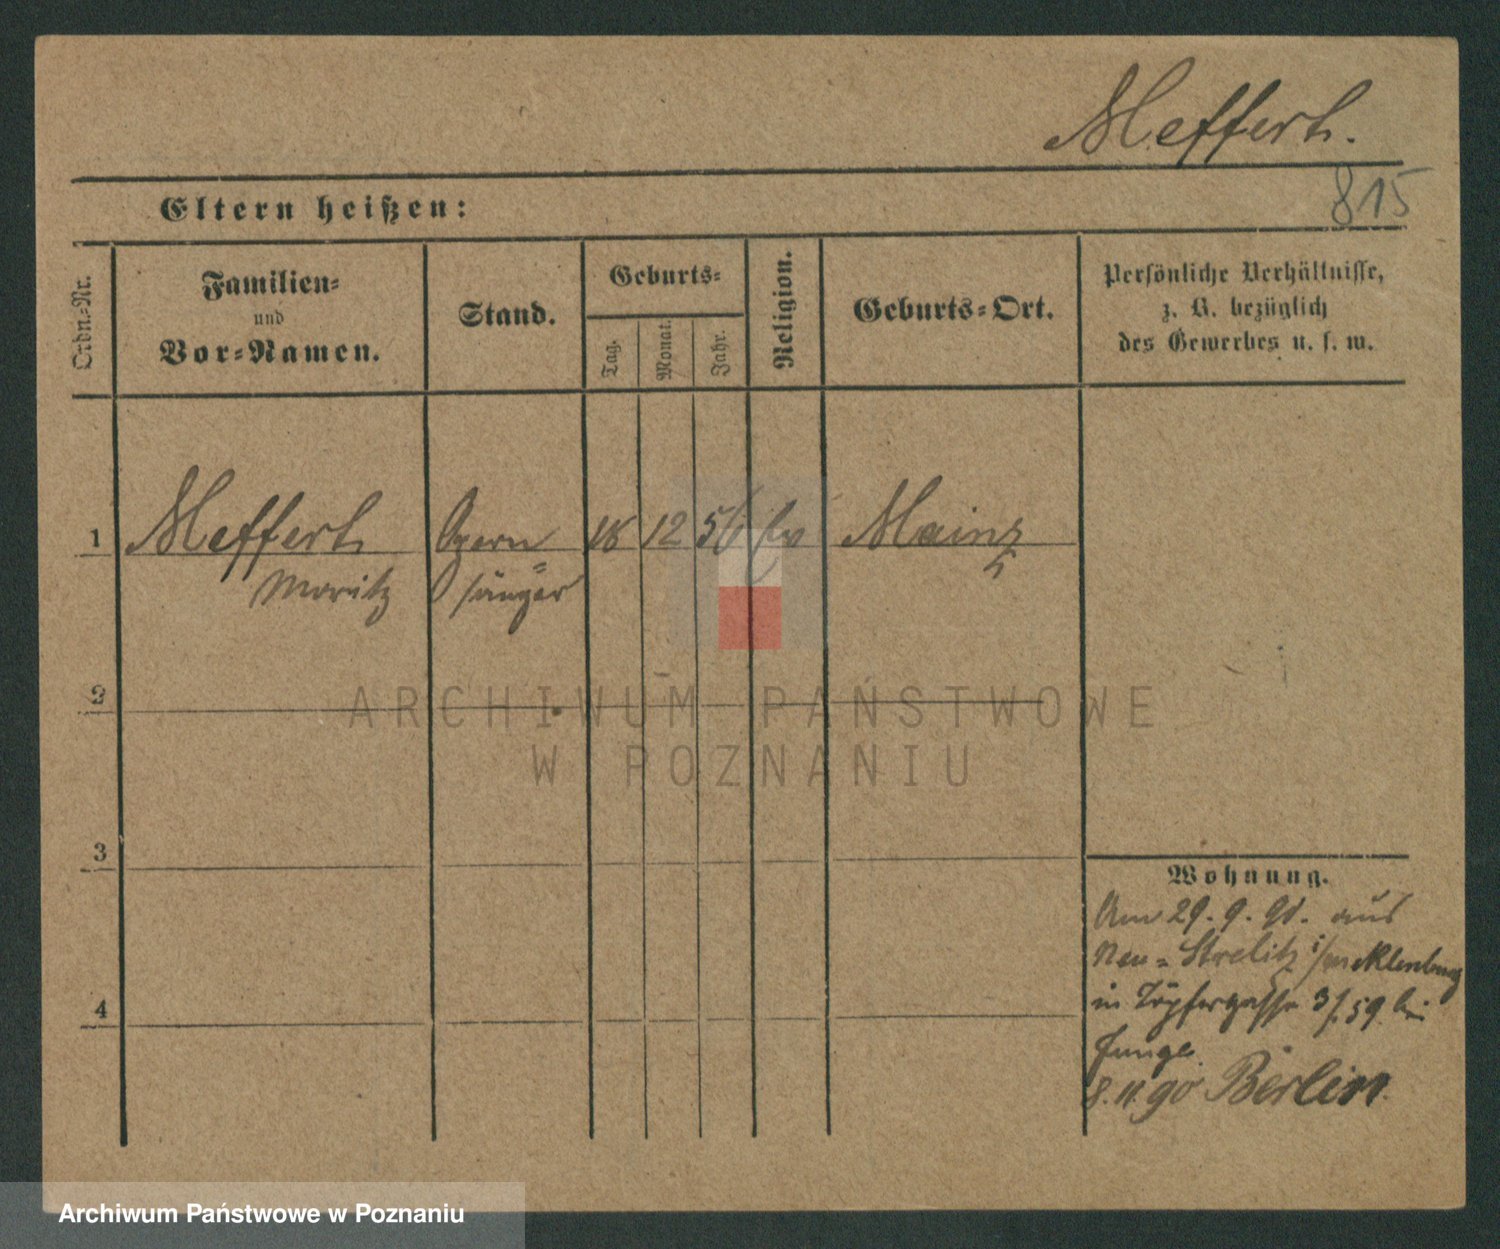 Meffert.
815
Eltern heißen:
Ordn.-Nr.
Familien-
und
Vor-Namen.
Stand.
Geburts-
Tag.
Monat.
Jahr.
Religion.
Geburts-Ort.
Persönliche Verhältnisse,
z. B. bezüglich
des Gewerbes u. s. w.
1 Meffert Opern 18 12 56 Ev Mainz
Moritz sänger
2
3
4
Wohnung.
Am 29.9.90. aus
Neu-Strelitz i/Mecklenburg
in Töpfergasse 3/.59 bei
Junge
8.11.90 Berlin.
ARCHIWUM PAŃSTWOWE
W POZNANIU
Archiwum Państwowe w Poznaniu